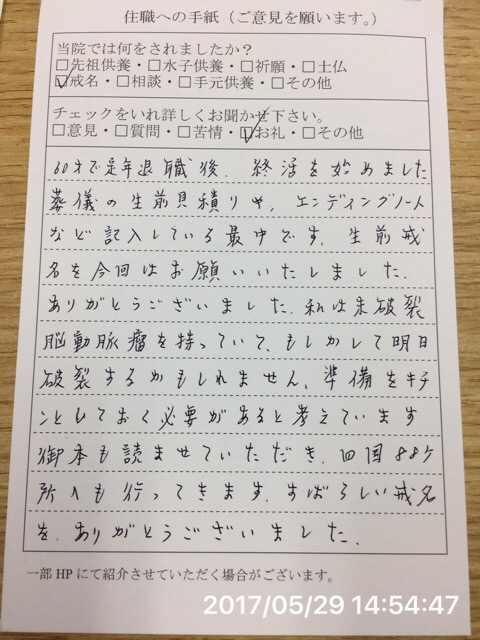 住職への手紙（ご意見を願います。）
当院では何をされましたか？
□先祖供養・□水子供養・□祈願・□土仏
☑戒名・□相談・□手元供養・□その他
チェックをいれ詳しくお聞かせ下さい。
□意見・□質問・□苦情・☑お礼・□その他
60才で定年退職後、終活を始めました
葬儀の生前見積りや、エンディングノート
など記入している最中です。生前戒
名を今回はお願いいたしました。
ありがとうございました。私は未破裂
脳動脈瘤を持っていて、もしかして明日
破裂するかもしれません、準備をキチ
ンとしておく必要があると考えています
御本も読ませていただき、四国88ケ
所へも行ってきます。すばらしい戒名
を、ありがとうございました。
一部HPにて紹介させていただく場合がございます。
2017/05/29 14:54:47